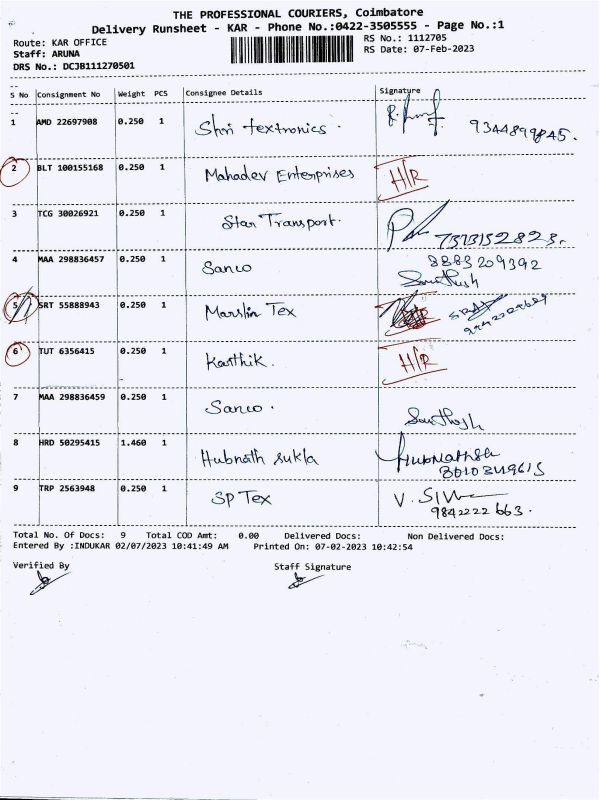 THE PROFESSIONAL COURIERS, Coimbatore
Delivery Runsheet - KAR - Phone No.:0422-3505555 - Page No.:1
Route: KAR OFFICE
RS No.: 1112705
Staff: ARUNA
RS Date: 07-Feb-2023
DRS No.: DCJB111270501
S No Consignment No Weight PCS Consignee Details Signature
1 AMD 22697908 0.250 1 Shri textronics. 9344899845.
2 BLT 100155168 0.250 1 Mahadev Enterprises H/R
3 TCG 30026921 0.250 1 Star Transport. 7373152823.
4 MAA 298836457 0.250 1 Sanco 8883209392
Santhosh
5 SRT 55888943 0.250 1 Marslin Tex
6 TUT 6356415 0.250 1 Karthik. H/R
7 MAA 298836459 0.250 1 Sanco. Santhosh
8 HRD 50295415 1.460 1 Hubnath sukla
9 TRP 2563948 0.250 1 SP Tex
9842222663.
Total No. Of Docs: 9 Total COD Amt: 0.00 Delivered Docs: Non Delivered Docs:
Entered By :INDUKAR 02/07/2023 10:41:49 AM Printed On: 07-02-2023 10:42:54
Verified By Staff Signature